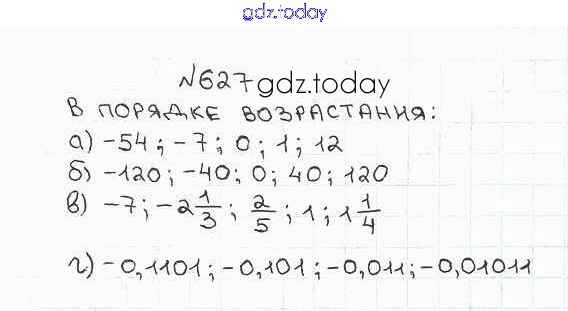 gdz.today
№627 gdz.today
В ПОРЯДКЕ ВОЗРАСТАНИЯ:
а) -54; -7; 0; 1; 12
б) -120; -40; 0; 40; 120
в) -7; -2 1/3; 2/5; 1; 1 1/4
г) -0,1101; -0,101; -0,011; -0,01011